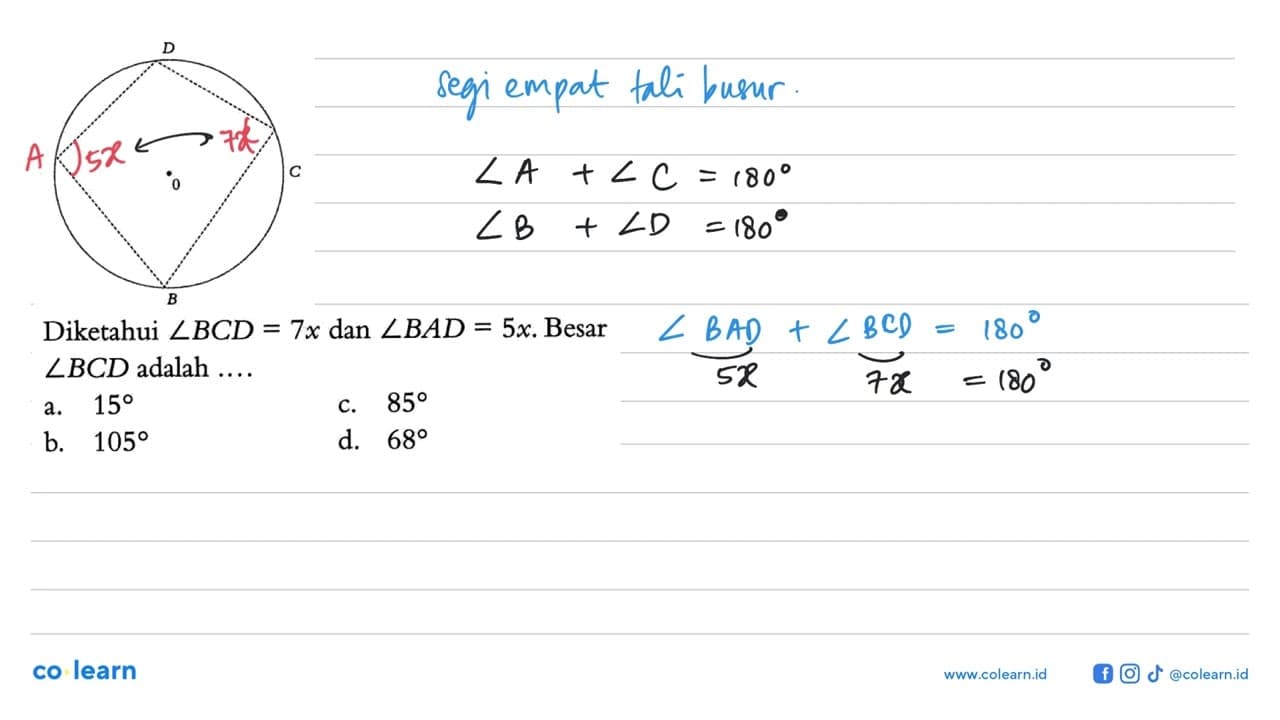 D
segi empat tali busur.
A 5x 7x
C
0
∠A + ∠C = 180°
∠B + ∠D = 180°
B
Diketahui ∠BCD = 7x dan ∠BAD = 5x. Besar
∠BCD adalah ....
a. 15° c. 85°
b. 105° d. 68°
∠BAD + ∠BCD = 180°
5x 7x = 180°
co learn
www.colearn.id @colearn.id